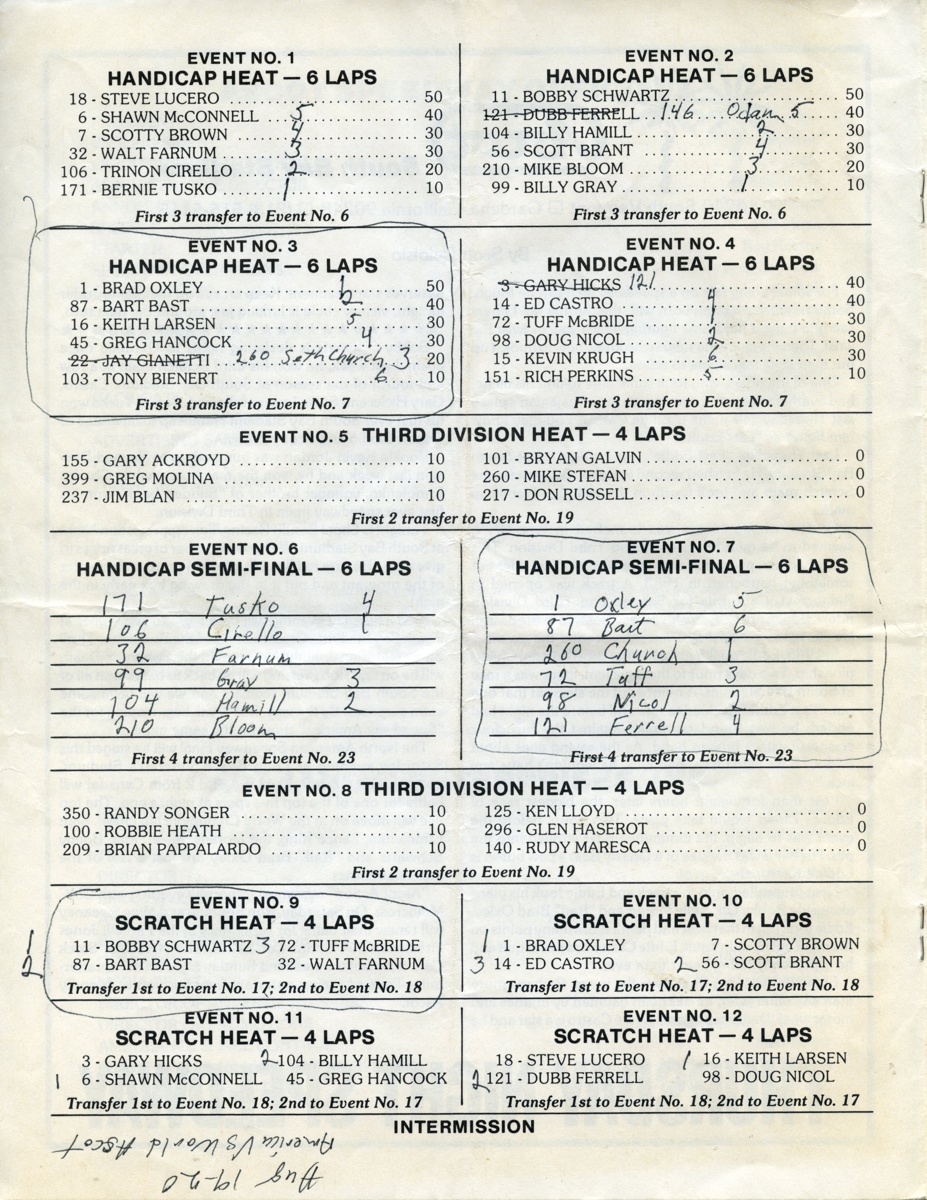 EVENT NO. 1
HANDICAP HEAT — 6 LAPS
18 - STEVE LUCERO 50
6 - SHAWN McCONNELL 5 40
7 - SCOTTY BROWN 4 30
32 - WALT FARNUM 3 30
106 - TRINON CIRELLO 2 20
171 - BERNIE TUSKO 1 10
First 3 transfer to Event No. 6
EVENT NO. 2
HANDICAP HEAT — 6 LAPS
11 - BOBBY SCHWARTZ 50
121 - DUBB FERRELL 146 Odam 5 40
104 - BILLY HAMILL 2 30
56 - SCOTT BRANT 4 30
210 - MIKE BLOOM 3 20
99 - BILLY GRAY 1 10
First 3 transfer to Event No. 6
EVENT NO. 3
HANDICAP HEAT — 6 LAPS
1 - BRAD OXLEY 1 50
87 - BART BAST 2 40
16 - KEITH LARSEN 5 30
45 - GREG HANCOCK 4 30
22 - JAY GIANETTI 260 Seth Church 3 20
103 - TONY BIENERT 6 10
First 3 transfer to Event No. 7
EVENT NO. 4
HANDICAP HEAT — 6 LAPS
3 - GARY HICKS 121 40
14 - ED CASTRO 4 40
72 - TUFF McBRIDE 1 30
98 - DOUG NICOL 2 30
15 - KEVIN KRUGH 6 30
151 - RICH PERKINS 5 10
First 3 transfer to Event No. 7
EVENT NO. 5 THIRD DIVISION HEAT — 4 LAPS
155 - GARY ACKROYD 10
399 - GREG MOLINA 10
237 - JIM BLAN 10
101 - BRYAN GALVIN 0
260 - MIKE STEFAN 0
217 - DON RUSSELL 0
First 2 transfer to Event No. 19
EVENT NO. 6
HANDICAP SEMI-FINAL — 6 LAPS
171 Tusko 4
106 Cirello 1
32 Farnum
99 Gray 3
104 Hamill 2
210 Bloom
First 4 transfer to Event No. 23
EVENT NO. 7
HANDICAP SEMI-FINAL — 6 LAPS
1 Oxley 5
87 Bart 6
260 Church 1
72 Tuff 3
98 Nicol 2
121 Ferrell 4
First 4 transfer to Event No. 23
EVENT NO. 8 THIRD DIVISION HEAT — 4 LAPS
350 - RANDY SONGER 10
100 - ROBBIE HEATH 10
209 - BRIAN PAPPALARDO 10
125 - KEN LLOYD 0
296 - GLEN HASEROT 0
140 - RUDY MARESCA 0
First 2 transfer to Event No. 19
EVENT NO. 9
SCRATCH HEAT — 4 LAPS
1 11 - BOBBY SCHWARTZ 3 72 - TUFF McBRIDE
2 87 - BART BAST 32 - WALT FARNUM
Transfer 1st to Event No. 17; 2nd to Event No. 18
EVENT NO. 10
SCRATCH HEAT — 4 LAPS
1 1 - BRAD OXLEY 7 - SCOTTY BROWN
3 14 - ED CASTRO 2 56 - SCOTT BRANT
Transfer 1st to Event No. 17; 2nd to Event No. 18
EVENT NO. 11
SCRATCH HEAT — 4 LAPS
3 - GARY HICKS 2 104 - BILLY HAMILL
1 6 - SHAWN McCONNELL 45 - GREG HANCOCK
Transfer 1st to Event No. 18; 2nd to Event No. 17
EVENT NO. 12
SCRATCH HEAT — 4 LAPS
18 - STEVE LUCERO 1 16 - KEITH LARSEN
2 121 - DUBB FERRELL 98 - DOUG NICOL
Transfer 1st to Event No. 18; 2nd to Event No. 17
INTERMISSION
Aug 19-20
America Vs World Ascot